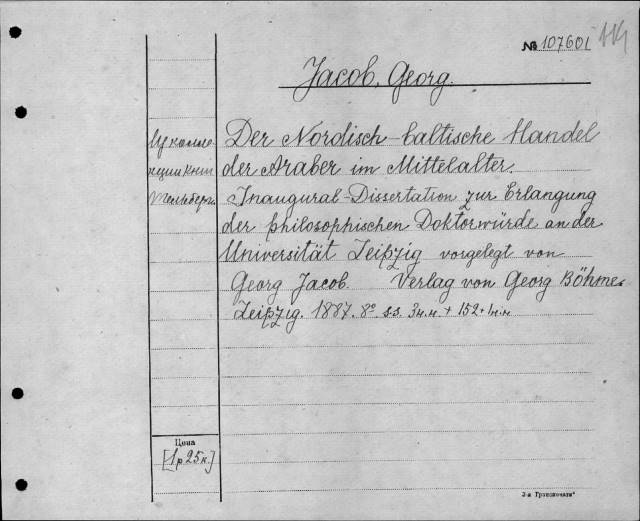 № 107601
Jacob, Georg.
Из коллекции Der Nordisch-baltische Handel
der Araber im Mittelalter.
Inaugural-Dissertation zur Erlangung
der philosophischen Doktorwürde an der
Universität Leipzig vorgelegt von
Georg Jacob. Verlag von Georg Böhme.
Leipzig. 1887. 8° s.s. 3н.н. + 152 + 1н.н
Цена
[1р 25к.]